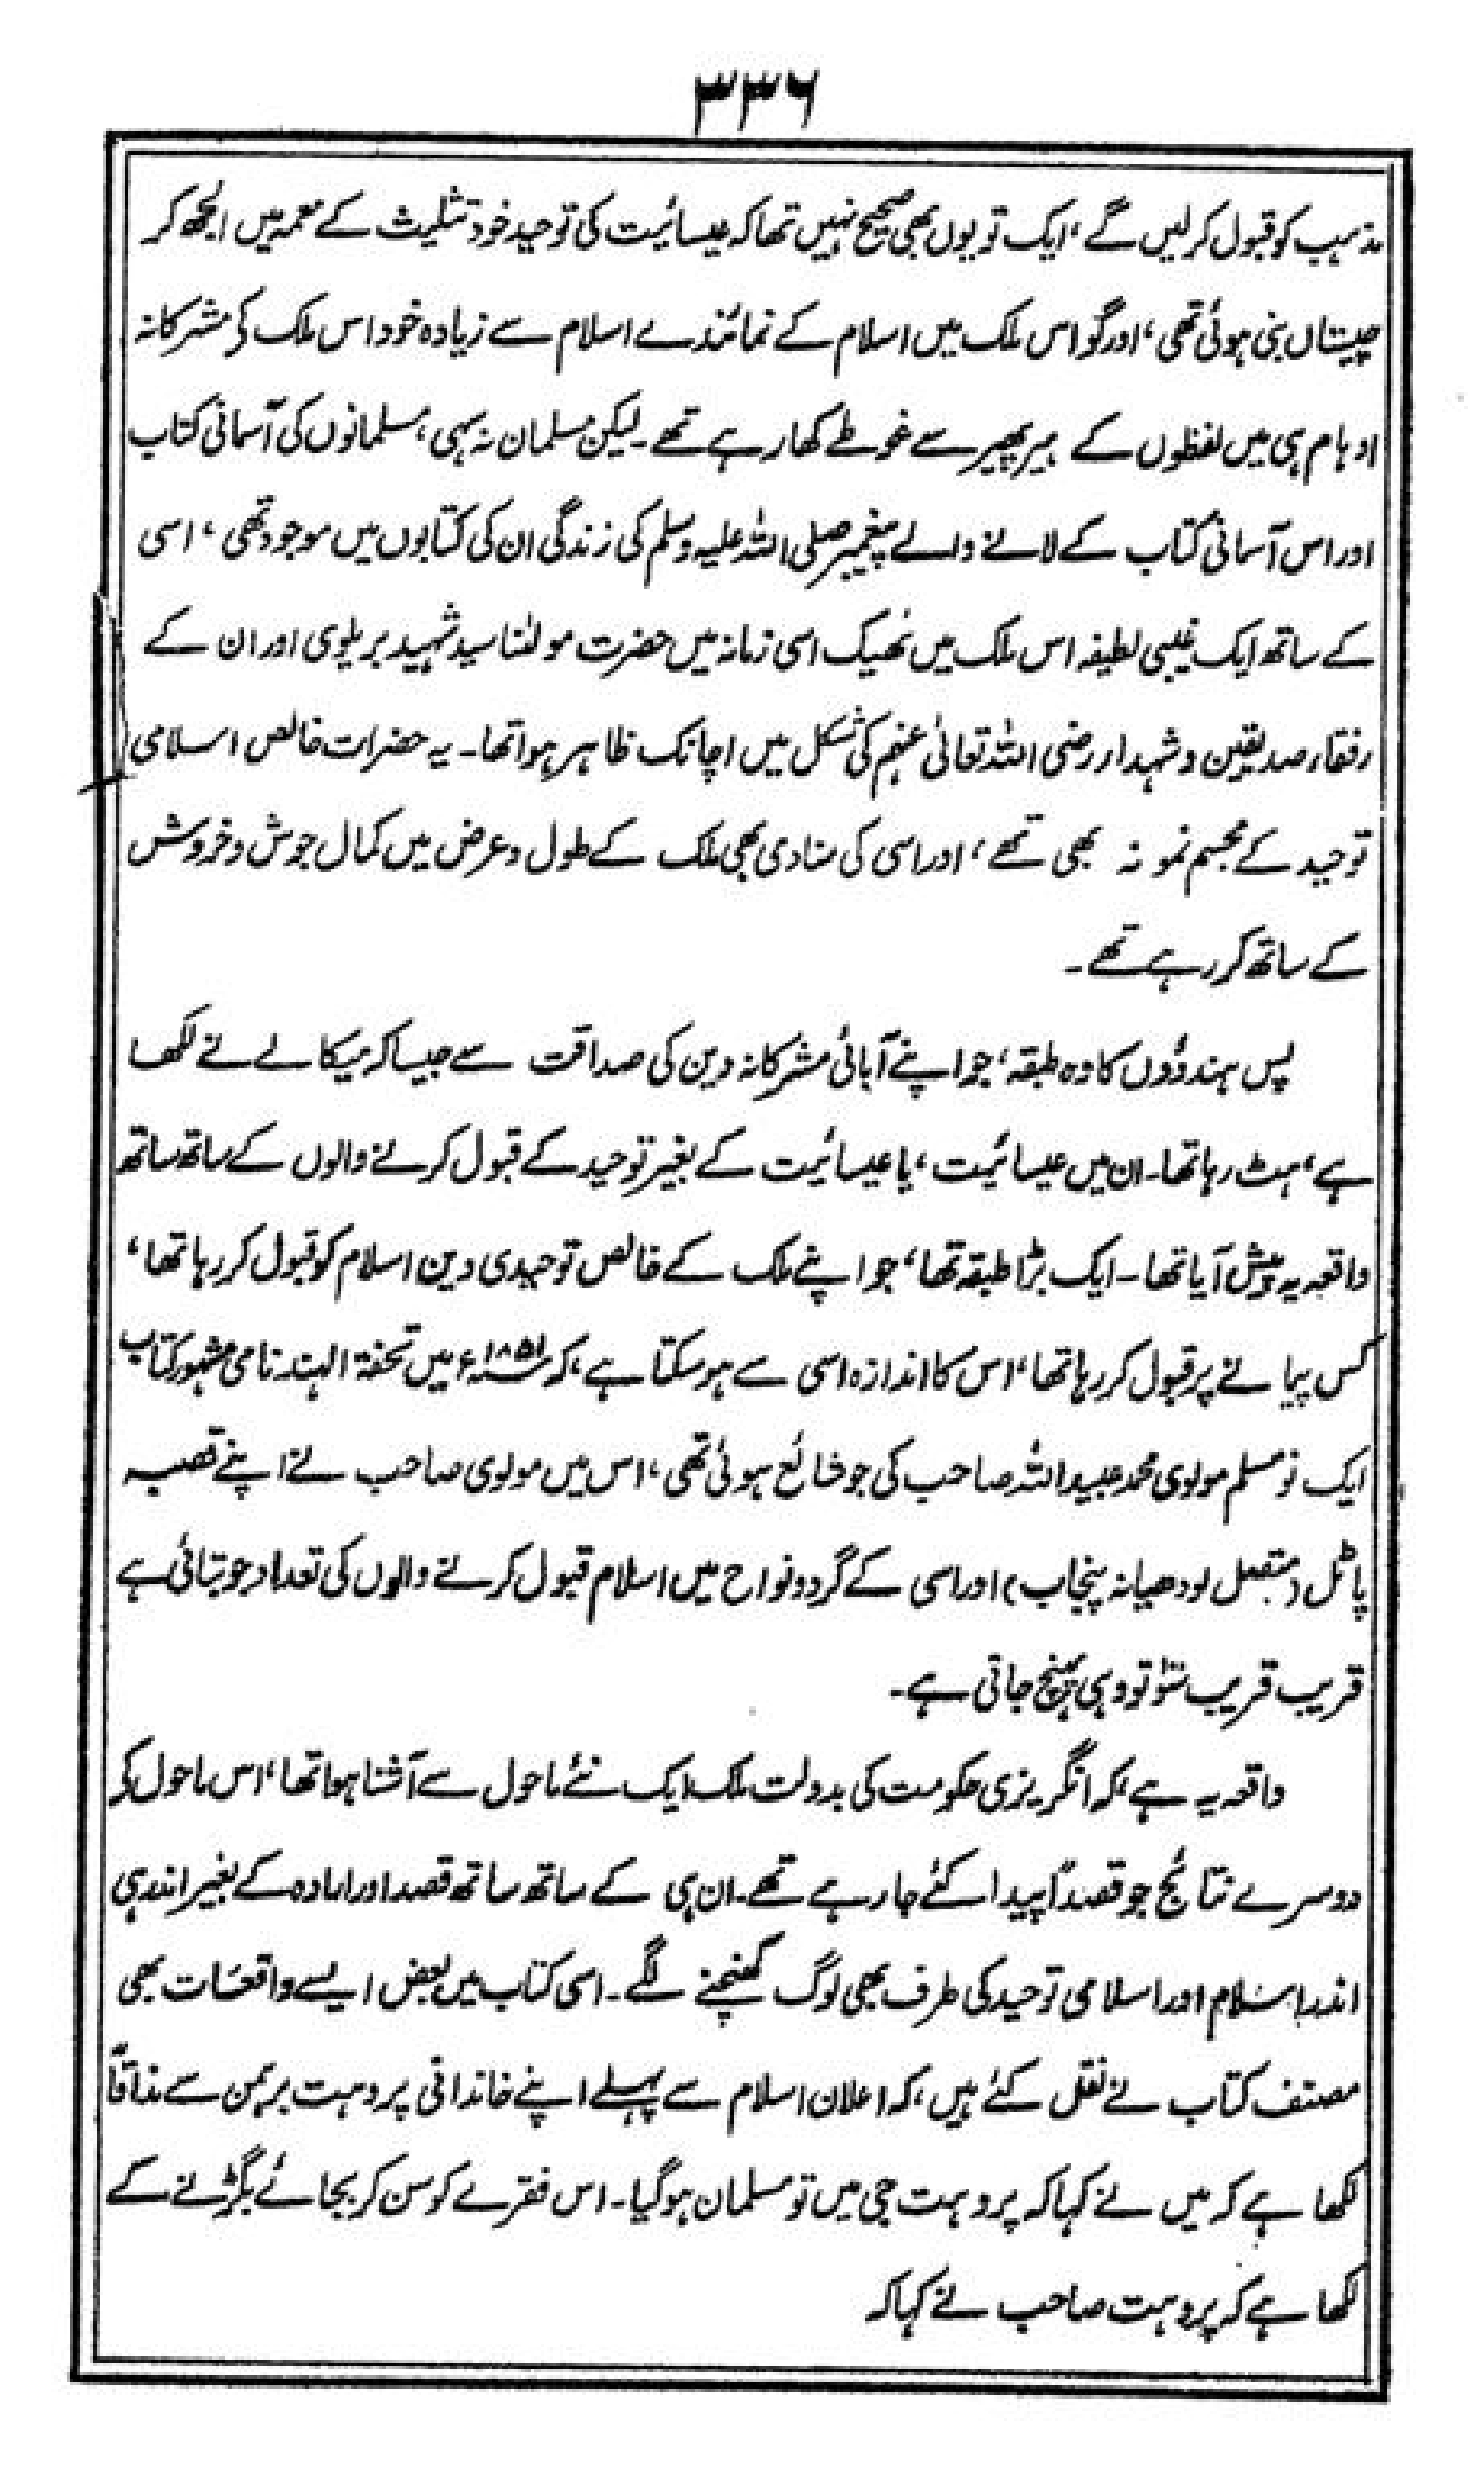 ۳۳۶
مذہب کو قبول کرلیں گے، ایک تو یوں بھی صحیح نہیں تھا کہ عیسائیت کی توحید خود تثلیث کے معمہ میں الجھ کر
چیستاں بنی ہوئی تھی، اور گو اس ملک میں اسلام کے نمائندے اسلام سے زیادہ خود اس ملک کی مشرکانہ
اوہام ہی میں لفظوں کے ہیر پھیر سے غوطے کھا رہے تھے۔ لیکن مسلمان نہ سہی، مسلمانوں کی آسمانی کتاب
اور اس آسمانی کتاب کے لانے والے پیغمبر صلی اللہ علیہ وسلم کی زندگی ان کی کتابوں میں موجود تھی، اسی
کے ساتھ ایک غیبی لطیفہ اس ملک میں ٹھیک اسی زمانہ میں حضرت مولٰنا سید شہید بریلوی اور ان کے
رفقاء صدیقین و شہداء رضی اللہ تعالیٰ عنہم کی شکل میں اچانک ظاہر ہوا تھا۔ یہ حضرات خالص اسلامی
توحید کے مجسم نمونہ بھی تھے، اور اسی کی منادی بھی ملک کے طول و عرض میں کمال جوش و خروش
کے ساتھ کر رہے تھے۔
پس ہندوؤں کا وہ طبقہ، جو اپنے آبائی مشرکانہ دین کی صداقت سے جیسا کہ میکالے نے لکھا
ہے، ہٹ رہا تھا۔ ان میں عیسائیت، یا عیسائیت کے بغیر توحید کے قبول کرنے والوں کے ساتھ ساتھ
واقعہ یہ پیش آیا تھا۔ ایک بڑا طبقہ تھا، جو اپنے ملک کے خالص توحیدی دین اسلام کو قبول کر رہا تھا،
کس پیمانے پر قبول کر رہا تھا، اس کا اندازہ اسی سے ہوسکتا ہے، کہ ۱۸۵۱ء میں تحفۃ الہند نامی مشہور کتاب
ایک نو مسلم مولوی محمد عبید اللہ صاحب کی جو شائع ہوئی تھی، اس میں مولوی صاحب نے اپنے قصبہ
پائل (متصل لودھیانہ پنجاب) اور اسی کے گرد و نواح میں اسلام قبول کرنے والوں کی تعداد جو بتائی ہے
قریب قریب سَو تو وہی پہنچ جاتی ہے۔
واقعہ یہ ہے، کہ انگریزی حکومت کی بدولت ملک ایک نئے ماحول سے آشنا ہوا تھا، اس ماحول کے
دوسرے نتائج جو قصداً پیدا کئے جا رہے تھے۔ ان ہی کے ساتھ ساتھ قصد اور ارادہ کے بغیر اندر ہی
اندر اسلام اور اسلامی توحید کی طرف بھی لوگ کھنچنے لگے۔ اسی کتاب میں بعض ایسے واقعات بھی
مصنف کتاب نے نقل کئے ہیں، کہ اعلان اسلام سے پہلے اپنے خاندانی پروہت برہمن سے مذاقاً
لکھا ہے کہ میں نے کہا کہ پروہت جی میں تو مسلمان ہوگیا۔ اس فقرے کو سن کر بجائے بگڑنے کے
لکھا ہے کہ پروہت صاحب نے کہا کہ